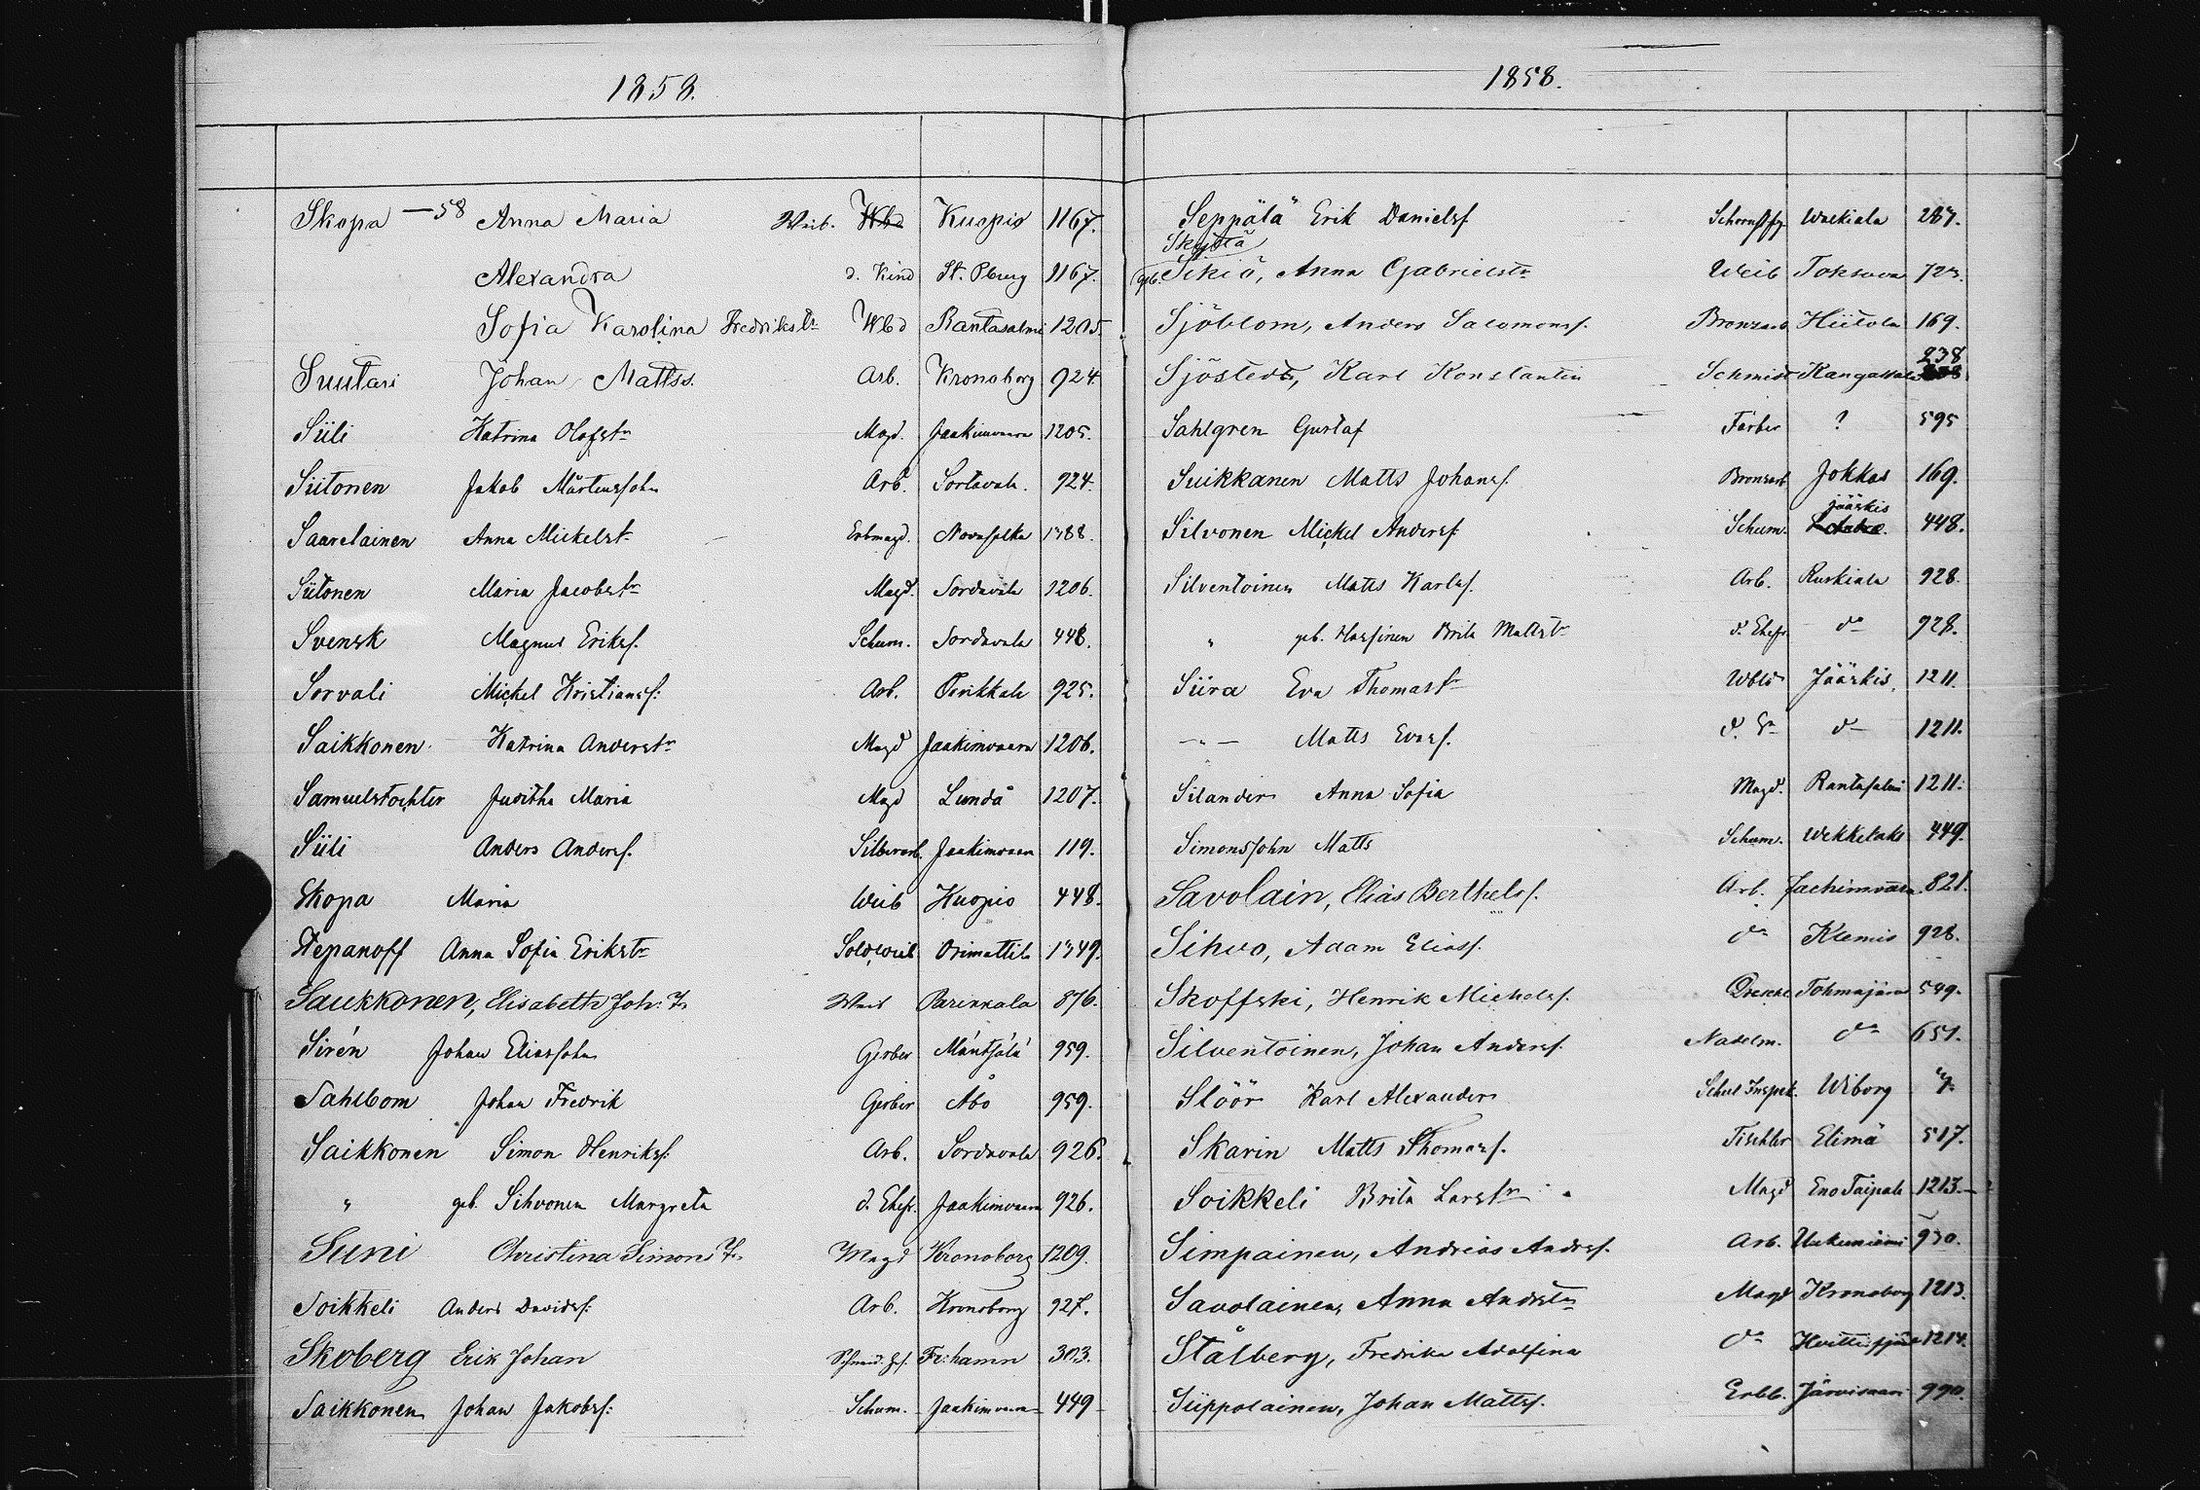 1858.
Skopa —58 Anna Maria Weib. Wbd Kuopio 1167.
Alexandra d. Kind St. Pburg 1167.
Sofia Karolina Fredrikstr Wbd Rantasalmi 1205.
Suutari Johan Mattss. Arb. Kronoborg 924.
Siili Katrina Olofstr Magd. Jaakimvaara 1205.
Siitonen Jakob Mårtenssohn Arb. Sortavala. 924.
Saarelainen Anna Mickelstr Erbmagd. 1388.
Siitonen Maria Jacobstr Magd. Sordavala 1206.
Svensk Magnus Eriks. Schum. Sordavala 448.
Sorvali Mickel Kristianss: Arb. Pirikkala 925.
Saikkonen Katrina Anderstr Magd Jaakimvaara 1206.
Samuelstochter Juditha Maria Magd Lundå 1207.
Siili Anders Anderss. Silberarb. Jaakimvaara 119.
Skopa Maria Weib Kuopio 448.
Stepanoff Anna Sofia Erikstr Soldweib Orimattila 1349.
Saukkonen, Elisabetha Joh. T. Weib Parikkala 876.
Sirén Johan Eliassohn Gerber Mäntsälä 959.
Sahlbom Johan Fredrik Gerber Åbo 959.
Saikkonen Simon Henrikss: Arb. Sordavala 926.
" geb. Sihvonen Margreta d. Ehefr. Jaakimvaara 926.
Suni Christina Simons T. Magd Kronoborg 1209.
Soikkeli Anders Davidss: Arb. Kronoborg 927.
Skoberg Erik Johan Fr:hamn 303.
Saikkonen Johan Jakobss: Schum. Jaakimvaara 449
1858.
Seppälä Erik Danielss Walkiala 287.
Skyttä
geb. Sikiö, Anna Gabrielstr Weib Toksova 723.
Sjöblom, Anders Salomonss. Bronzarb. Hiitola 169.
238
Sjöstedt, Karl Konstantin Schmidt Kangasala
Sahlgren Gustaf Färber ? 595
Suikkanen Matts Johanss. Bronzarb Jokkas 169.
Jääskis
Silvonen Mickel Anderss Schum. 448.
Silventoinen Matts Karlss. Arb. Ruskiala 928.
" geb. Hassinen Brita Mattstr d. Ehefr. do 928.
Siira Eva Thomastr Wbld Jääskis, 1211.
—"— Matts Evass. d. Sn do 1211.
Silander Anna Sofia Magd. Rantasalmi 1211.
Simonssohn Matts Schum. Wekkelaks 449.
Savolain, Elias Berthels. Arb. Jachimvaara. 821.
Sihvo, Adam Eliass. do Klemis 928.
Skoffski, Henrik Michelss. Tohmajärvi 549.
Silventoinen, Johan Anderss. Nadelm. do 651.
Slöör Karl Alexander Schul Inspek. Wiborg 4.
Skarin Matts Thomass. Tischler Elimä 517.
Soikkeli Brita Larstr Magd Eno Taipale 1213.
Simpainen, Andreas Andrss. Arb. Uukuniemi 930.
Savolainen, Anna Andrstr Magd Kronoborg 1213.
Stålberg, Fredrika Adolfina do 1214.
Siippolainen, Johan Mattss. Erbb. Järvisaari 990.